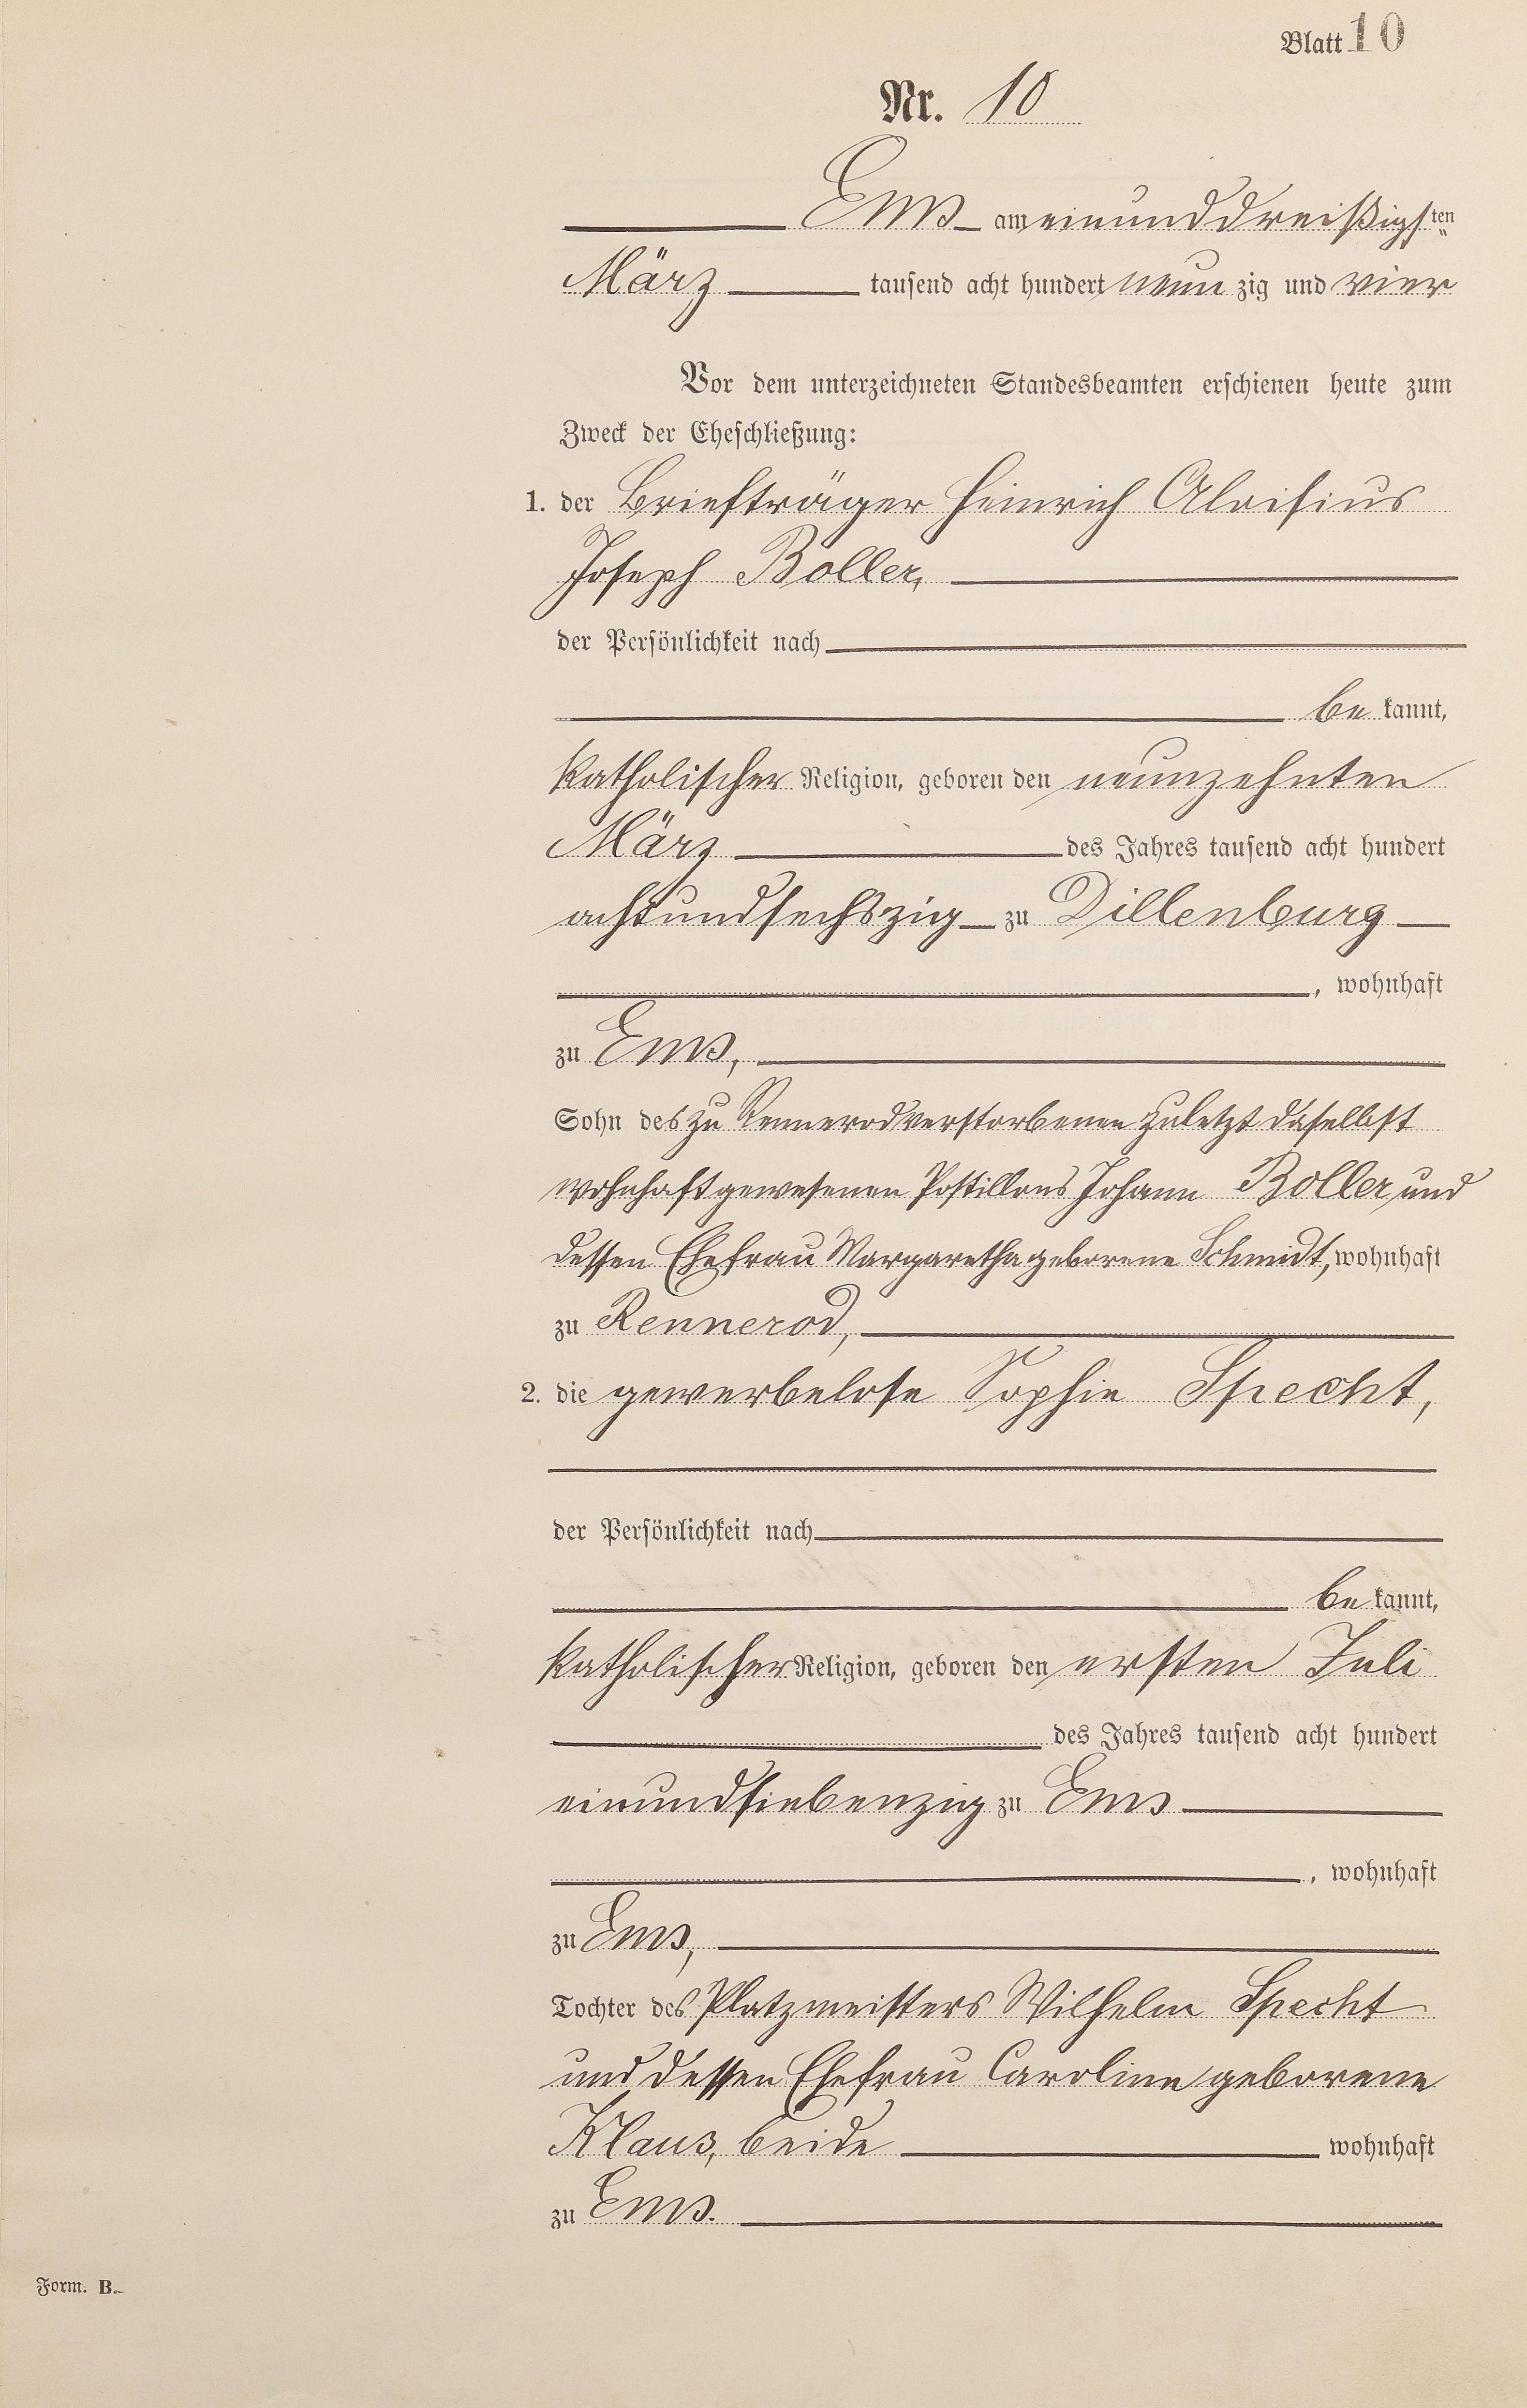 Blatt 10
Nr. 10
Ems am einunddreißigsten
März tausend acht hundert neunzig und vier
Vor dem unterzeichneten Standesbeamten erschienen heute zum
Zweck der Eheschließung:
1. der Briefträger Heinrich Aloisius
Joseph Boller,
der Persönlichkeit nach
bekannt,
katholischer Religion, geboren den neunzehnten
März des Jahres tausend acht hundert
achtundsechszig zu Dillenburg
, wohnhaft
zu Ems,
Sohn des zu Rennerod verstorbenen zuletzt daselbst
wohnhaft gewesenen Postillons Johann Boller und
dessen Ehefrau Margaretha geborene Schmidt, wohnhaft
zu Rennerod,
2. die gewerbelose Sophie Specht,
der Persönlichkeit nach
bekannt,
katholischer Religion, geboren den ersten Juli
des Jahres tausend acht hundert
einundsiebenzig zu Ems
, wohnhaft
zu Ems,
Tochter des Platzmeisters Wilhelm Specht
und dessen Ehefrau Caroline geborene
Klaus, beide wohnhaft
zu Ems.
Form. B.